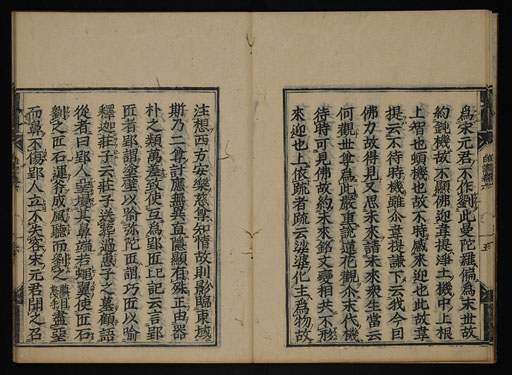 爲宋元君不作劉此曼陀羅偏爲末世故
約鈍機故不顯佛迎韋提淨土機中上根
上智也頓機也故不時感來迎也此故韋
提云不待時機雖尒韋提謙下云我今因
佛力故得見又思未來諸未來衆生當云
何觀世尊爲此嚴重說蓮花觀小末代機
待時可見佛故約末來銘文變相共不形
來迎也上依疏者疏云娑婆化主爲物故
注想西方安樂慈尊知情故則影臨東域
斯乃二尊許應無異直隱顯有殊正由器
朴之類萬差致使互爲郢匠記云言郢
匠者郢謂塗堊以喻弥陀匠謂巧匠以喻
釋迦莊子云莊子送葬過惠子之墓顧語
從者曰郢人堊墁其鼻端若蝿翼使匠石
劉之匠石運斧成風聽而劉之盡堊
而鼻不傷郢人立不失容宋元君聞之召